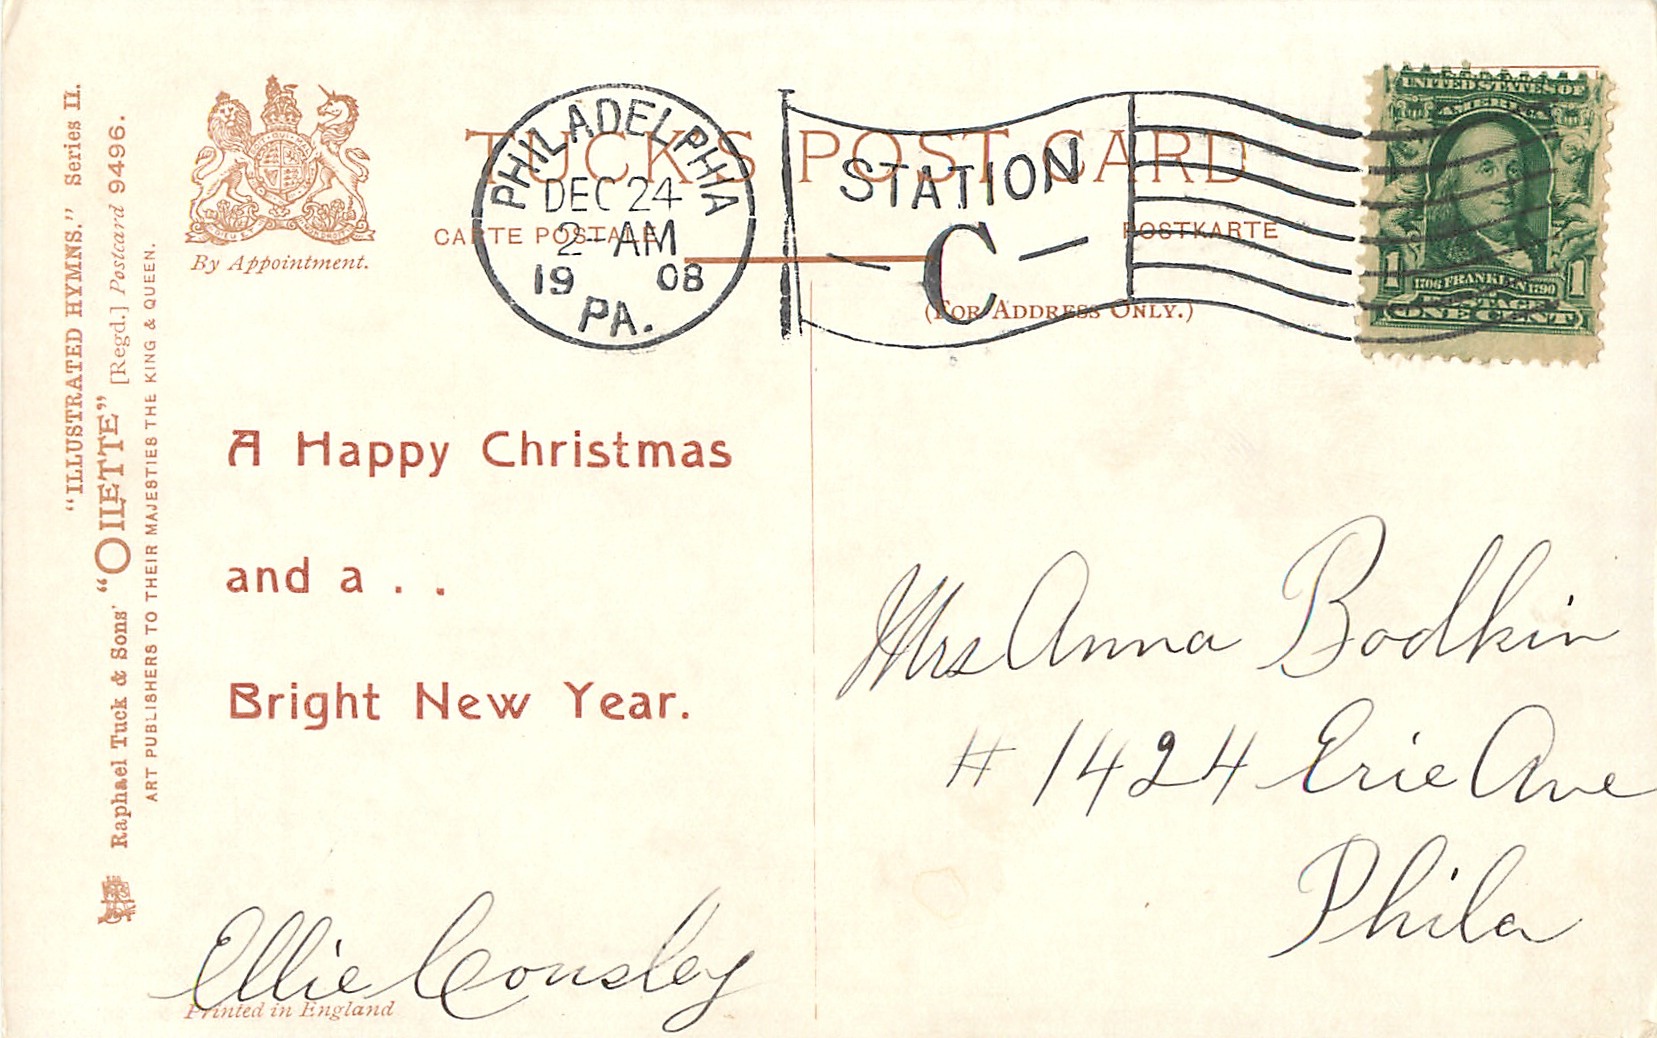 "ILLUSTRATED HYMNS." Series II.
Raphael Tuck & Sons' "OILETTE" [Regd.] Postcard 9496.
ART PUBLISHERS TO THEIR MAJESTIES THE KING & QUEEN.
By Appointment.
TUCK'S POST CARD
CARTE POSTALE
POSTKARTE
(FOR ADDRESS ONLY.)
PHILADELPHIA
DEC 24
2-AM
1908
PA.
STATION
C
UNITED STATES OF
AMERICA
1706 FRANKLIN 1790
1 1
POSTAGE
ONE CENT
A Happy Christmas
and a . .
Bright New Year.
Ellie Consley
Printed in England
Mrs Anna Bodkin
# 1424 Erie Ave
Phila